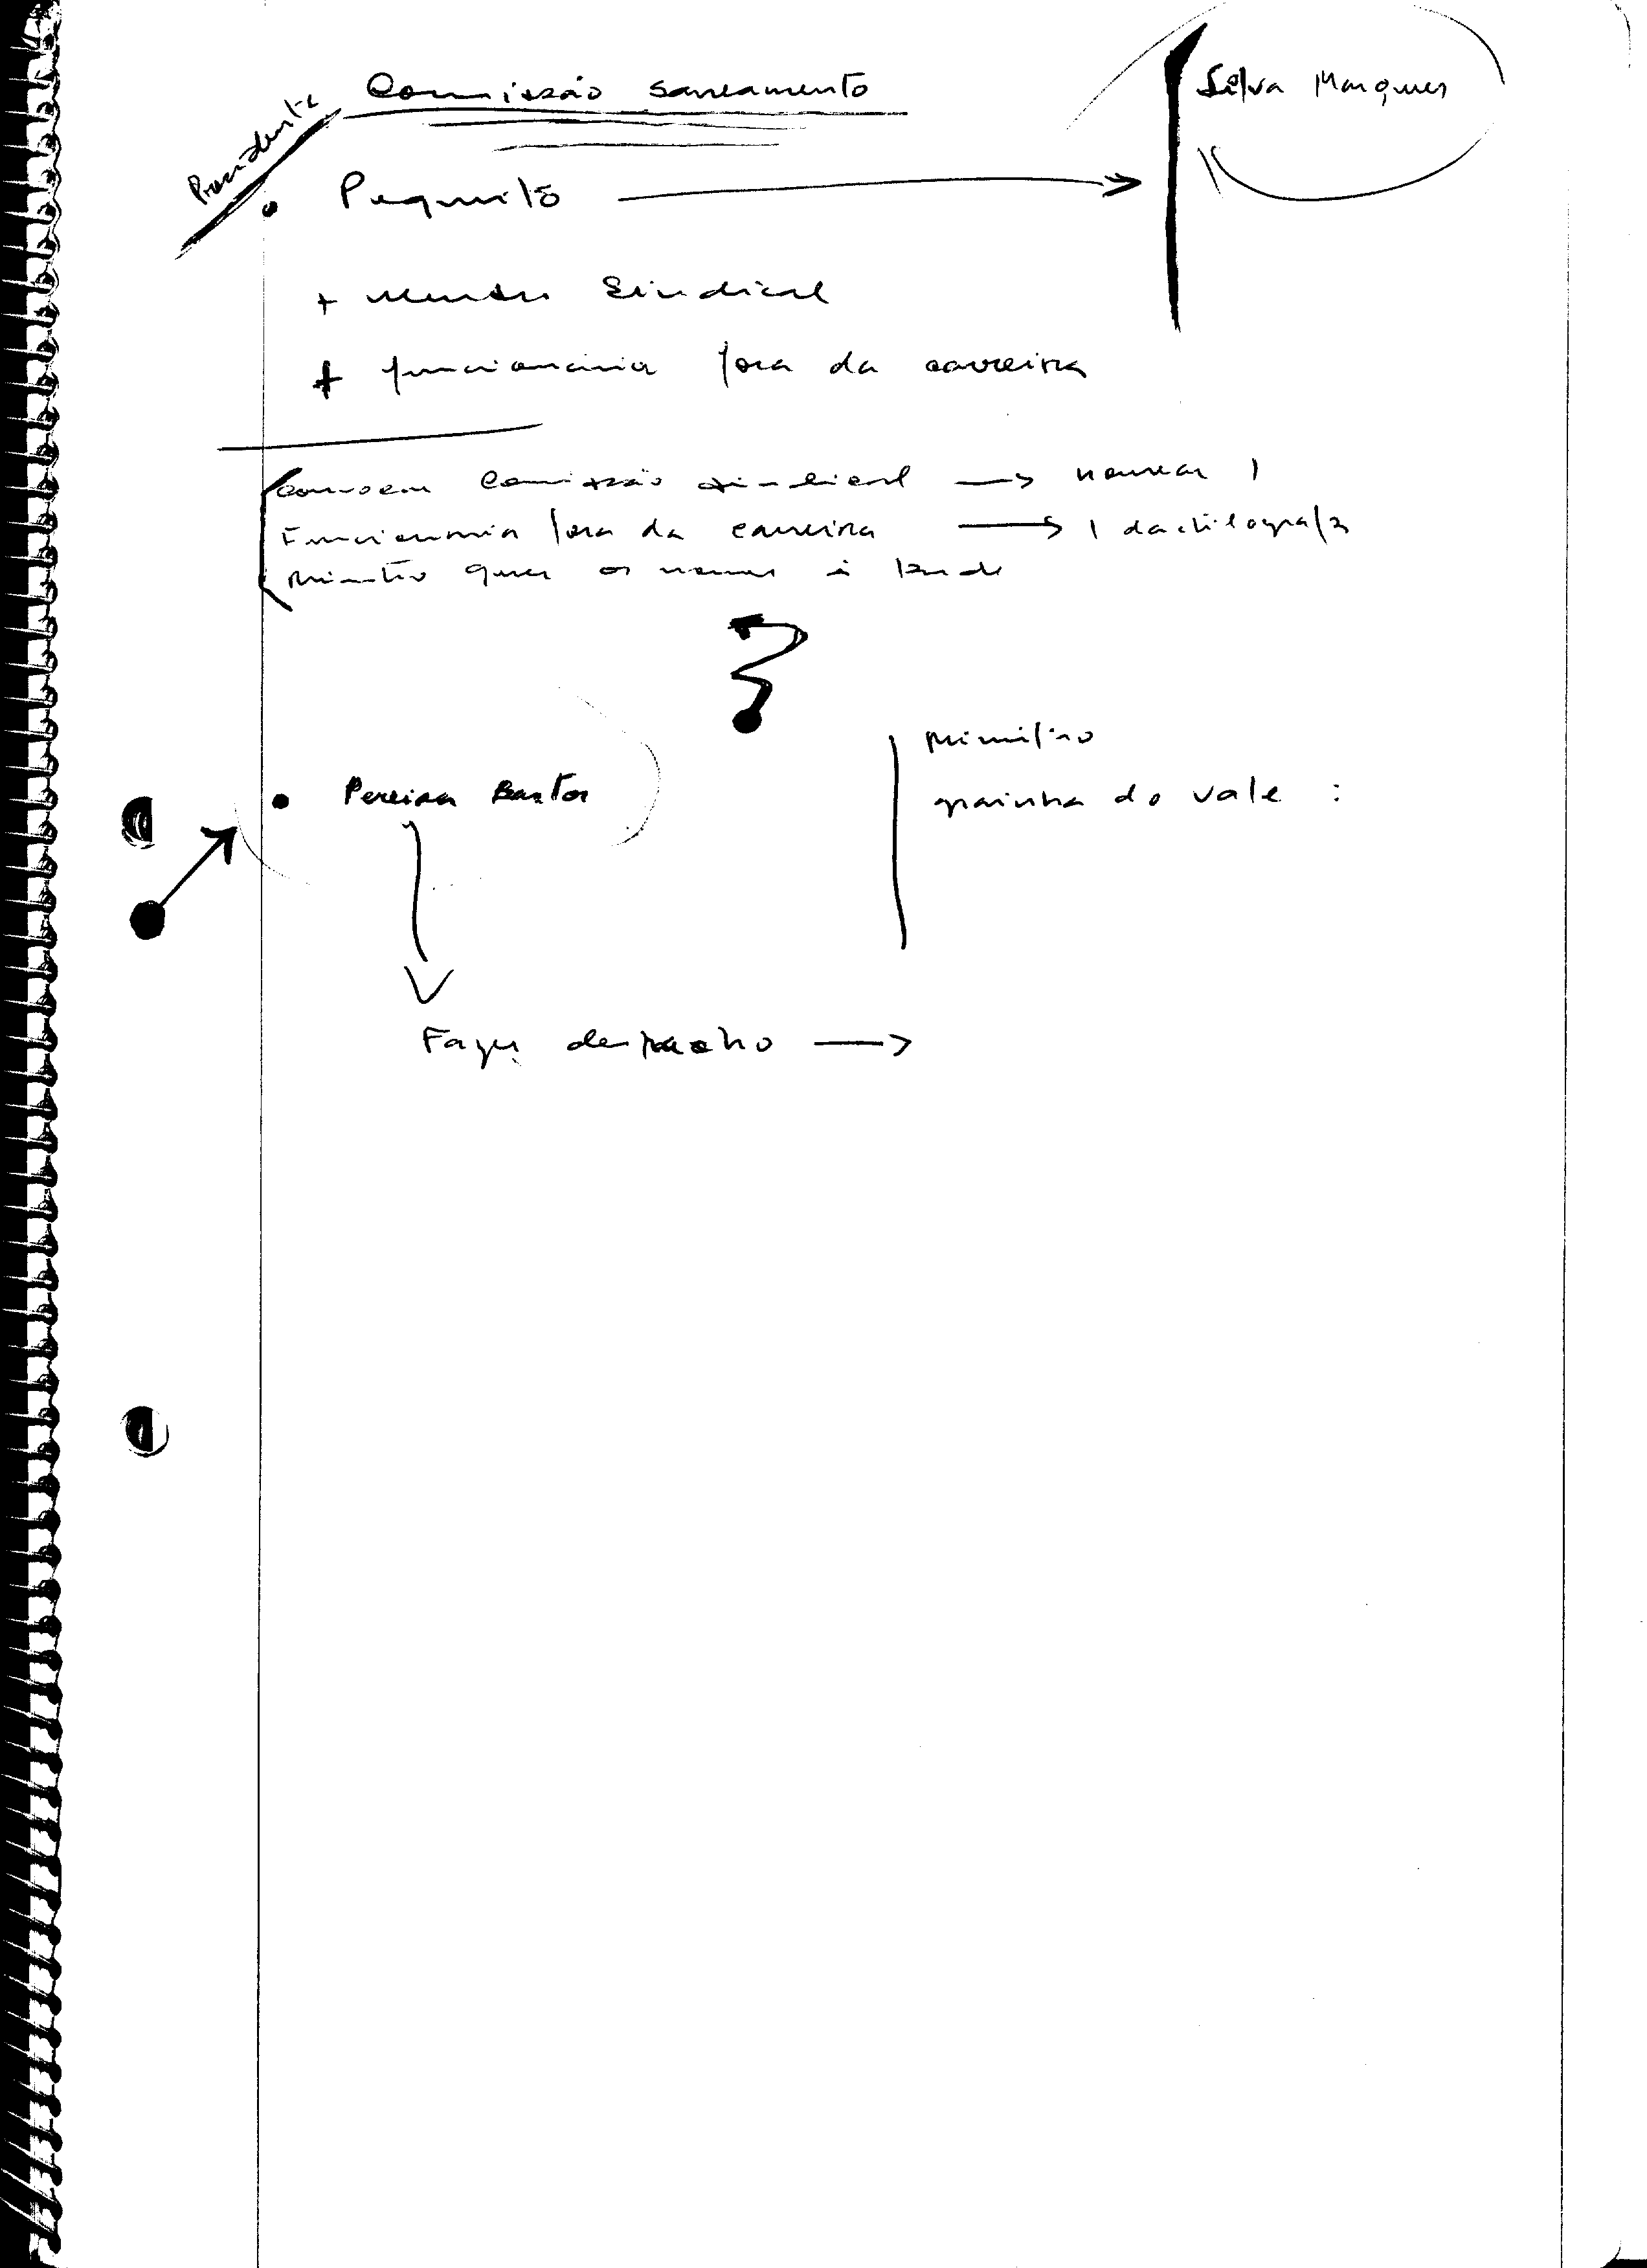 Comissão saneamento
Silva Marques
Presidente
• Pequito →
+ membro Sindical
+ funcionário fora da carreira
Comissão sindical → nomear 1
Funcionário fora da carreira → 1 dactilografa
Ministro quer os nomes à tarde
• Pereira Bastos
Ministro
grainha do vale :
Fazer despacho →